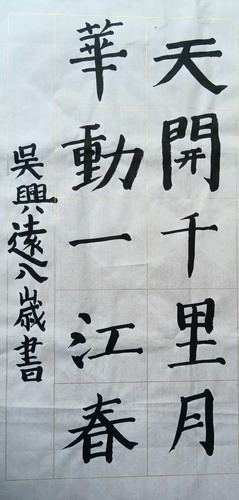 天開千里月
華動一江春
吳興遠八歲書